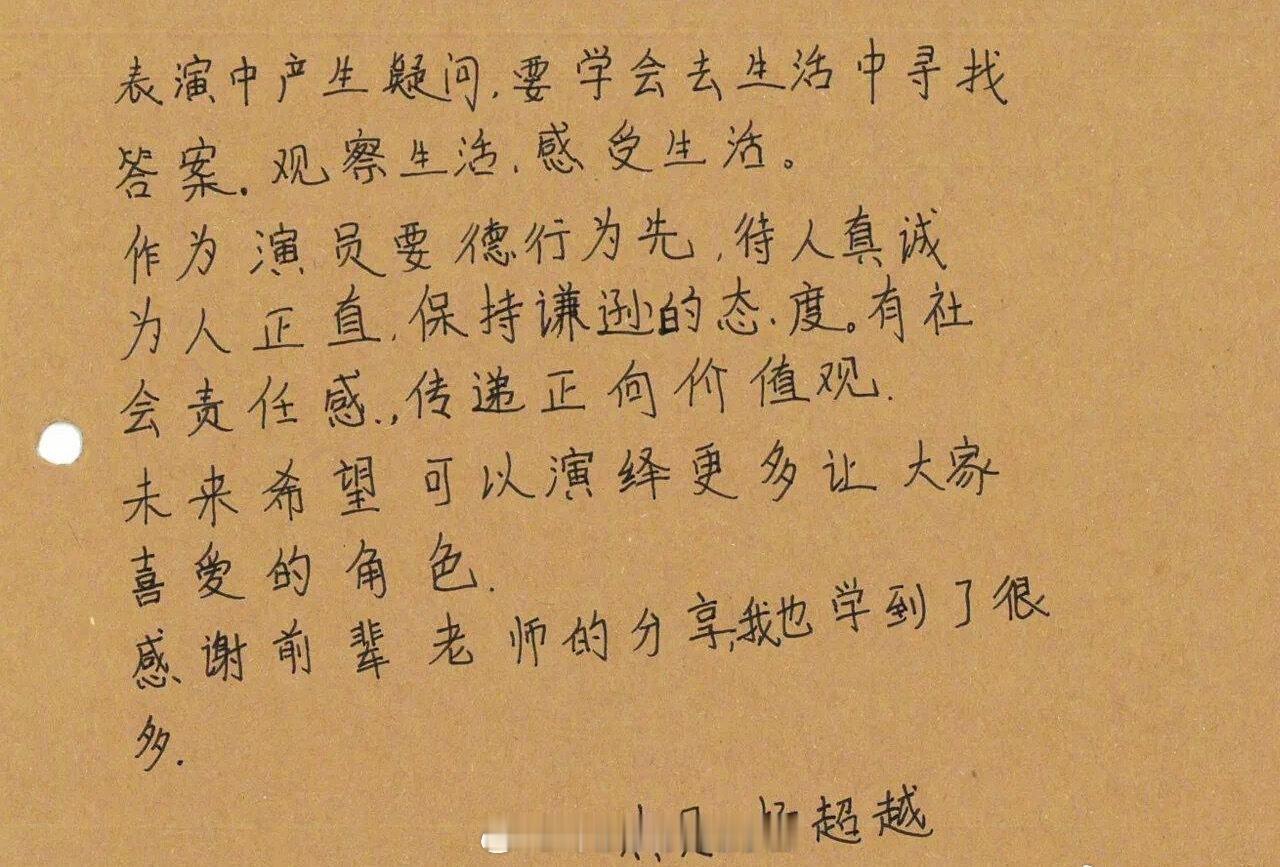 表演中产生疑问,要学会去生活中寻找
答案.观察生活,感受生活。
作为演员要德行为先,待人真诚
为人正直,保持谦逊的态度。有社
会责任感.,传递正向价值观.
未来希望可以演绎更多让大家
喜爱的角色.
感谢前辈老师的分享,我也学到了很
多.
超越